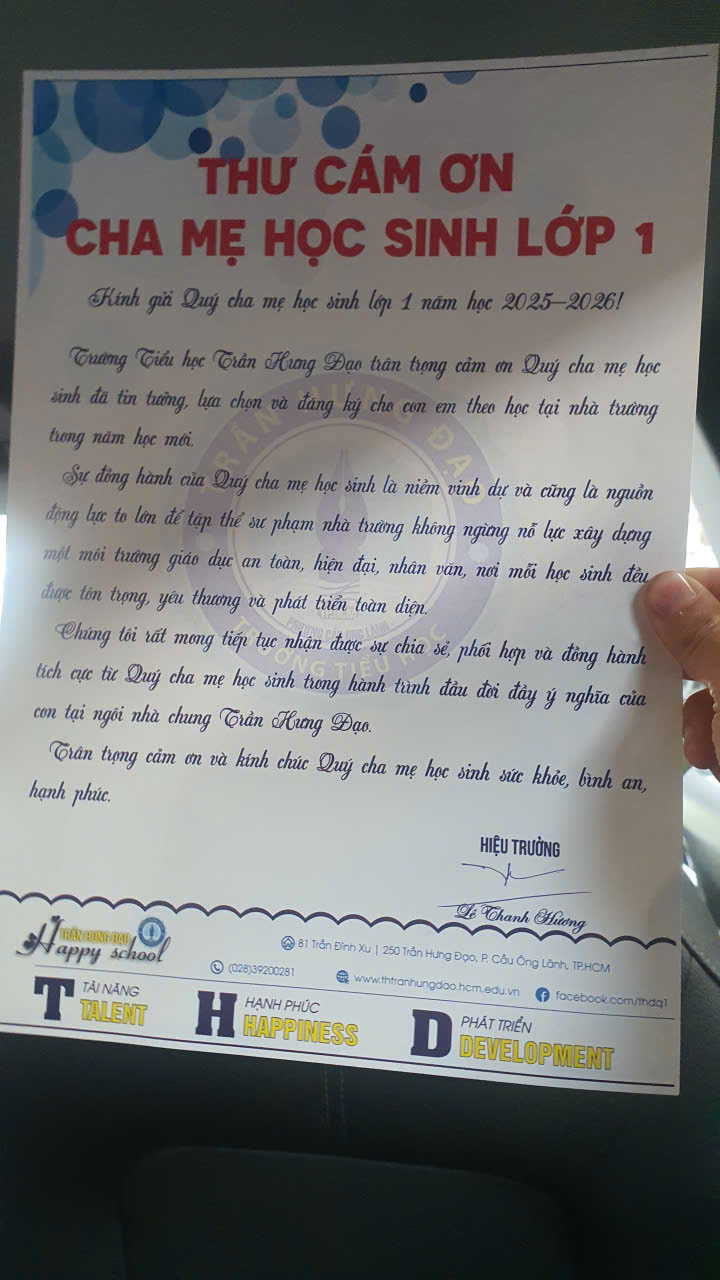 THƯ CÁM ƠN
CHA MẸ HỌC SINH LỚP 1
Kính gửi Quý cha mẹ học sinh lớp 1 năm học 2025-2026!
Trường Tiểu học Trần Hưng Đạo trân trọng cảm ơn Quý cha mẹ học
sinh đã tin tưởng, lựa chọn và đăng ký cho con em theo học tại nhà trường
trong năm học mới.
Sự đồng hành của Quý cha mẹ học sinh là niềm vinh dự và cũng là nguồn
động lực to lớn để tập thể sư phạm nhà trường không ngừng nỗ lực xây dựng
một môi trường giáo dục an toàn, hiện đại, nhân văn, nơi mỗi học sinh đều
được tôn trọng, yêu thương và phát triển toàn diện.
Chúng tôi rất mong tiếp tục nhận được sự chia sẻ, phối hợp và đồng hành
tích cực từ Quý cha mẹ học sinh trong hành trình đầu đời đầy ý nghĩa của
con tại ngôi nhà chung Trần Hưng Đạo.
Trân trọng cảm ơn và kính chúc Quý cha mẹ học sinh sức khỏe, bình an,
hạnh phúc.
TRẦN HƯNG ĐẠO
TRƯỜNG TIỂU HỌC
HIỆU TRƯỞNG
Lê Thanh Hương
TRẦN HƯNG ĐẠO
Happy school
81 Trần Đình Xu | 250 Trần Hưng Đạo, P. Cầu Ông Lãnh, TP.HCM
(028)39200281
www.thtranhungdao.hcm.edu.vn
facebook.com/thdq1
T TÀI NĂNG
TALENT
H HẠNH PHÚC
HAPPINESS
D PHÁT TRIỂN
DEVELOPMENT